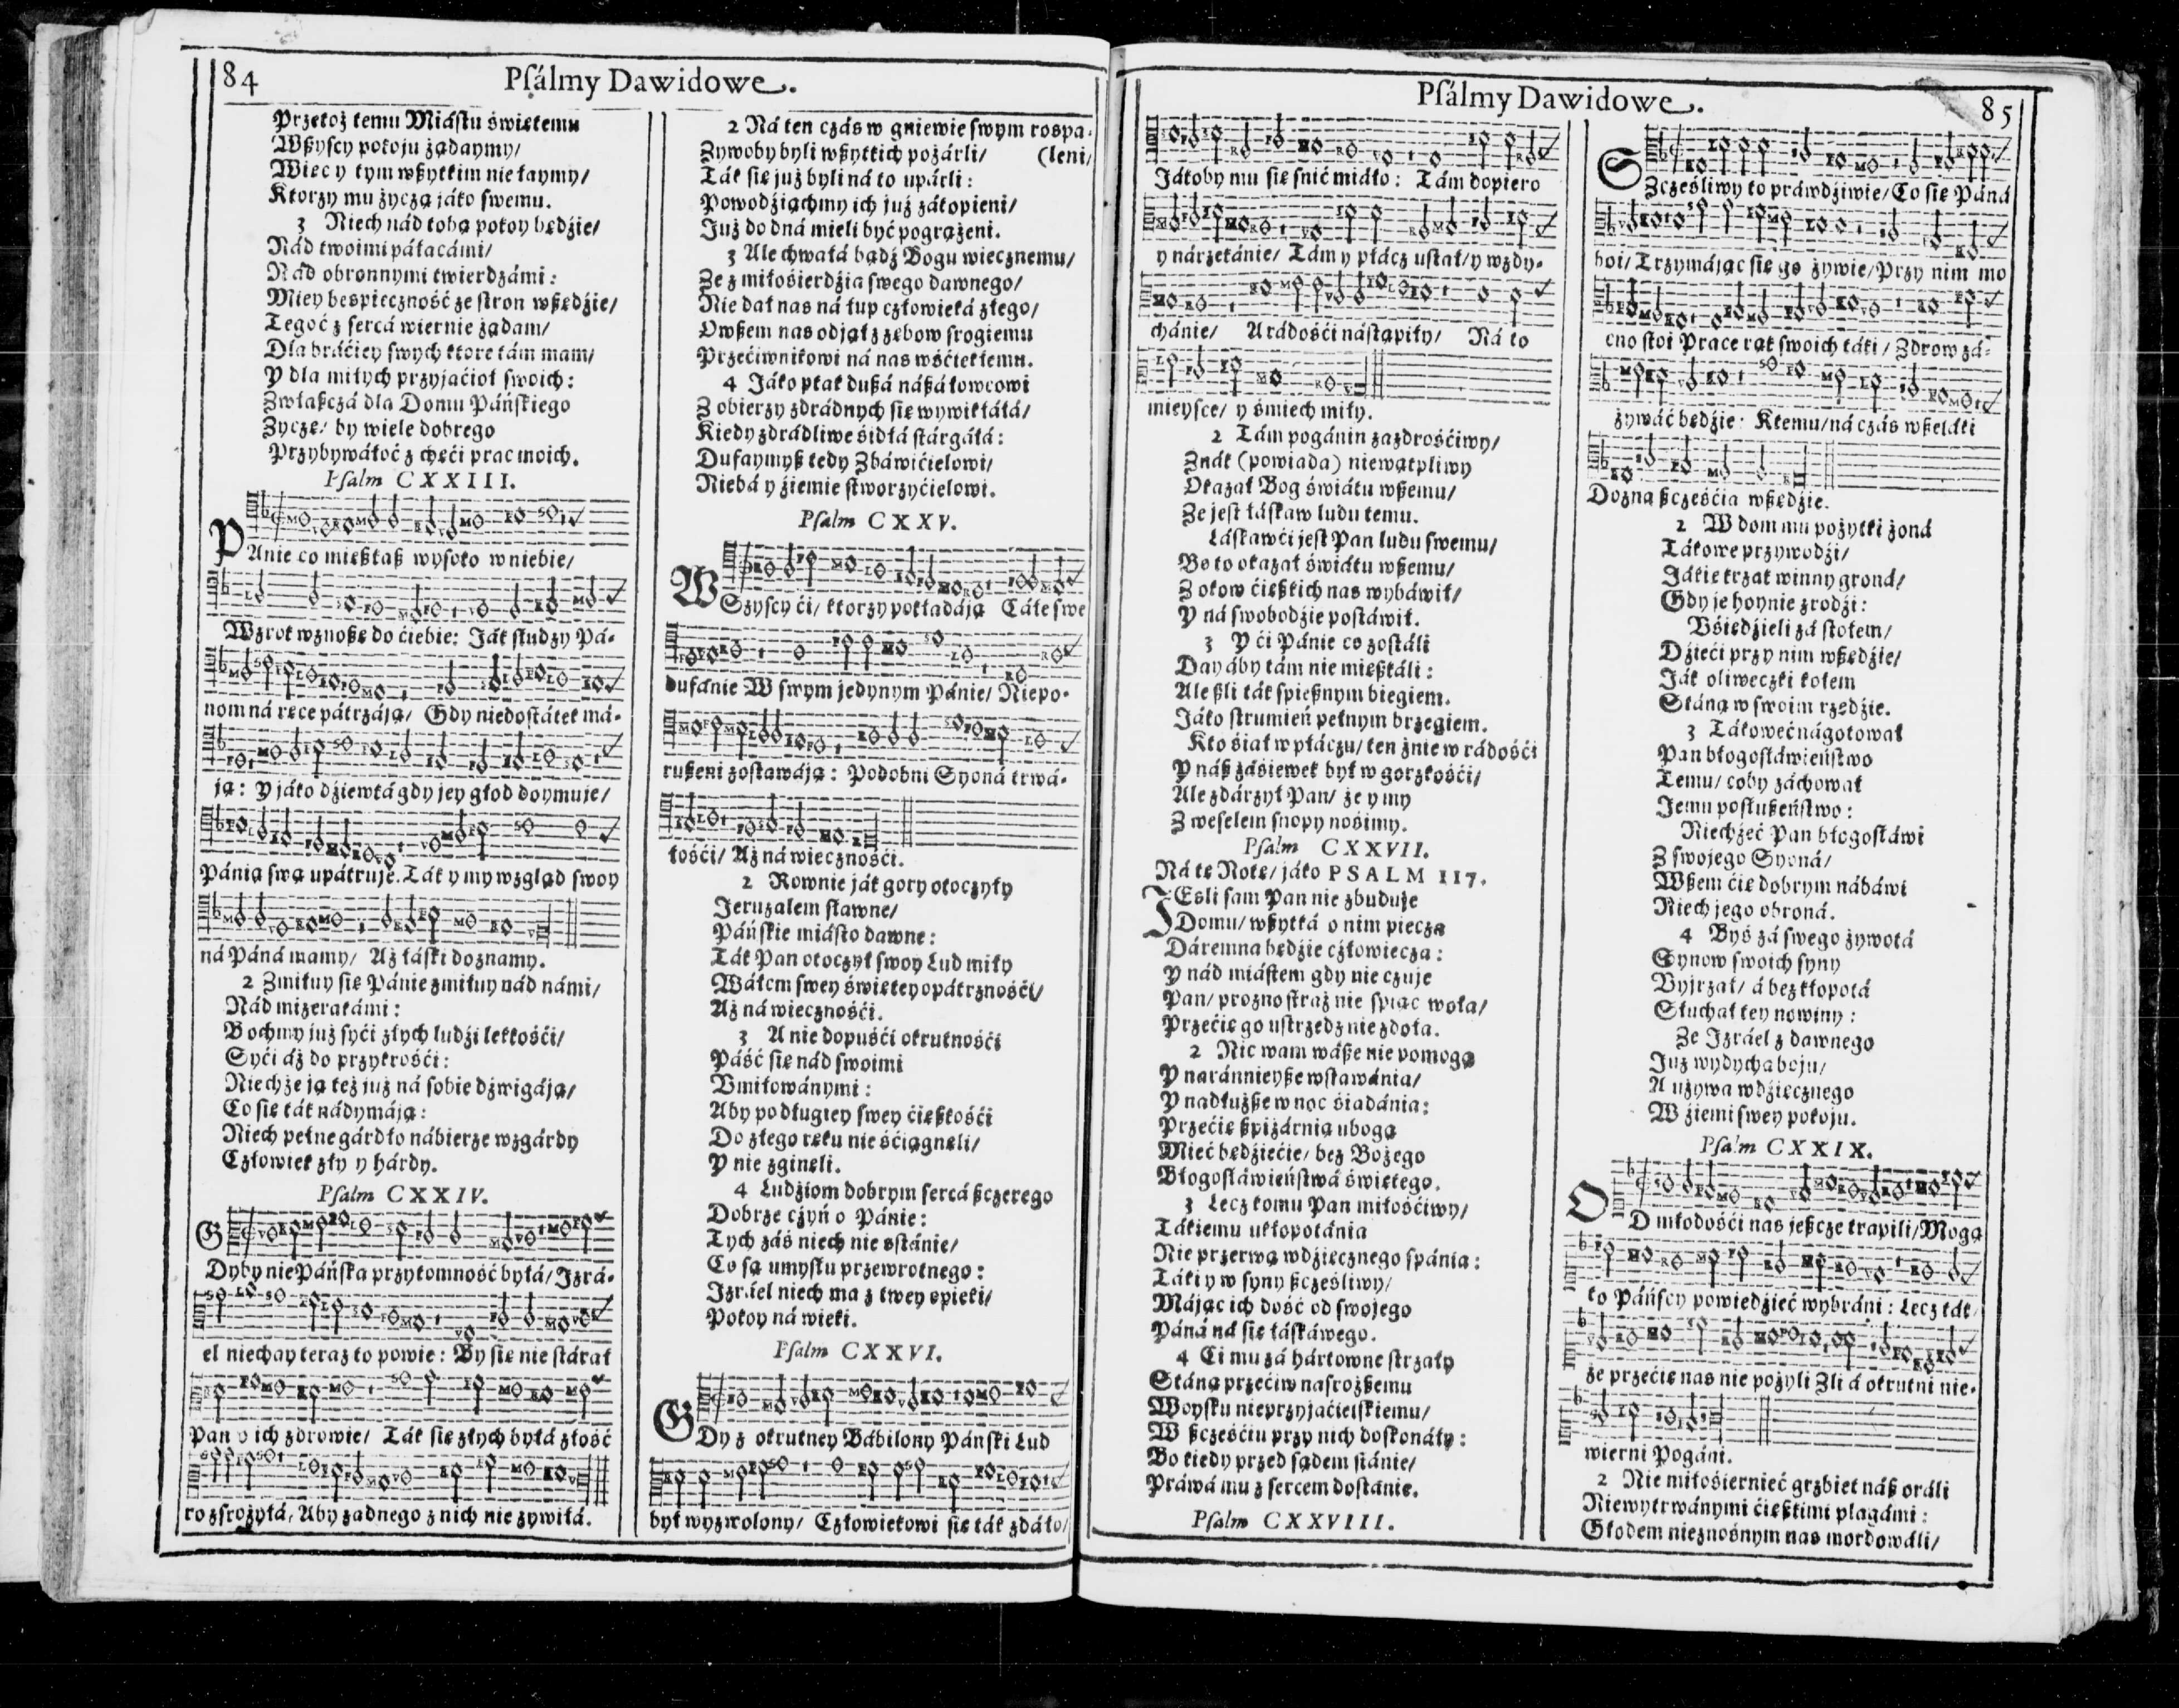 84
Pſálmy Dawidowe.
Przetoż temu Miáſtu świętemu
Wßyſcy pokoju żądaymy/
Więc y tym wßytkim nie łaymy/
Ktorzy mu życzą jáko ſwemu.
3 Niech nád tobą pokoy będźie/
Nád twoimi páłacámi/
Nád obronnymi twierdzámi:
Miey beſpieczność ze ſtron wßędźie/
Tegoć z ſercá wiernie żądam/
Dla bráćiey ſwych ktore tám mam/
Y dla miłych przyjaćioł ſwoich:
Zwłaßczá dla Domu Páńſkiego
Zyczę/ by wiele dobrego
Przybywáłoć z chęći prac moich.
Pſalm CXXIII.
PAnie co mießkaß wyſoko w niebie/
Wzrok wznoßę do ćiebie: Ják ſłudzy Pá-
nom ná ręce pátrzáją/ Gdy niedoſtátek má-
ją: Y jáko dźiewká gdy jey głod doymuje/
Pánią ſwą upátruje. Ták y my wzgląd ſwoy
ná Páná mamy/ Aż łáſki doznamy.
2 Zmiłuy ſię Pánie zmiłuy nád námi/
Nád mizerakámi:
Bochmy już ſyći złych ludźi lekkośći/
Syći áż do przykrośći:
Niechże ją też już ná ſobie dźwigáją/
Co ſię ták nádymáją:
Niech pełne gárdło nábierze wzgárdy
Człowiek zły y hárdy.
Pſalm CXXIV.
GDyby nie Páńſka przytomność byłá/ Izrá-
el niechay teraz to powie: By ſię nie ſtárał
Pan o ich zdrowie/ Ták ſię złych byłá złość
rozſrożyłá, Aby żadnego z nich nie żywiłá.
2 Ná ten czás w gniewie ſwym rospa-
Zywoby byli wßytkich pożárli/ (leni/
Ták ſię już byli ná to upárli:
Powodźiąchmy ich już zátopieni/
Już do dná mieli być pogrążeni.
3 Ale chwałá bądź Bogu wiecznemu/
Ze z miłośierdźia ſwego dawnego/
Nie dał nas ná łup człowieká złego/
Owßem nas odjął z zębow ſrogiemu
Przećiwnikowi ná nas wśćiekłemu.
4 Jáko ptak dußá náßá łowcowi
Z obierzy zdrádnych ſię wywikłáłá/
Kiedy zdrádliwe śidłá ſtárgáłá:
Dufaymyß tedy Zbáwićielowi/
Niebá y źiemie ſtworzyćielowi.
Pſalm CXXV.
WSzyſcy ći/ ktorzy pokładáją Cáłe ſwe
dufánie W ſwym jedynym Pánie/ Niepo-
rußeni zoſtawáją: Podobni Syoná trwá-
łośći/ Aż ná wiecznośći.
2 Rownie ják gory otoczyły
Jeruzalem ſławne/
Páńſkie miáſto dawne:
Ták Pan otoczył ſwoy Lud miły
Wáłem ſwey świętey opátrznośći/
Aż ná wiecznośći.
3 A nie dopuśći okrutnośći
Páść ſię nád ſwoimi
Umiłowánymi:
Aby po długiey ſwey ćięßkośći
Do złego ręku nie śćiągnęli/
Y nie zginęli.
4 Ludźiom dobrym ſercá ßczerego
Dobrze czyń o Pánie:
Tych záś niech nie sſtánie/
Co ſą umyſłu przewrotnego:
Izráel niech ma z twey opieki/
Pokoy ná wieki.
Pſalm CXXVI.
GDy z okrutney Bábilony Páńſki Lud
był wyzwolony/ Człowiekowi ſię ták zdáło/
Pſálmy Dawidowe.
85
Jákoby mu ſię ſnić miáło: Tám dopiero
y nárzekánie/ Tám y płácz uſtał/ y wzdy-
chánie/ A rádośći náſtąpiły/ Ná to
mieyſce/ y śmiech miły.
2 Tám pogánin zazdrośćiwy/
Znák (powiada) niewątpliwy
Okazał Bog świátu wßemu/
Ze jeſt łáſkaw ludu temu.
Láſkawći jeſt Pan ludu ſwemu/
Bo to okazał świátu wßemu/
Z okow ćięßkich nas wybáwił/
Y ná ſwobodźie poſtáwił.
3 Y ći Pánie co zoſtáli
Day áby tám nie mießkáli:
Ale ßli ták ſpießnym biegiem.
Jáko ſtrumień pełnym brzegiem.
Kto śiał w płáczu/ ten żnie w rádośći
Y náß záśiewek był w gorzkośći/
Ale zdárzył Pan/ że y my
Z weſelem ſnopy nośimy.
Pſalm CXXVII.
Ná tę Notę/ jáko PSALM 117.
JEsli ſam Pan nie zbuduje
Domu/ wßytká o nim piecza
Dáremna będźie człowiecza:
Y nád miáſtem gdy nie czuje
Pan/ prozno ſtraż nie ſpiąc woła/
Przećię go uſtrzedz nie zdoła.
2 Nic wam wáße nie pomogą
Y naránnieyße wſtawánia/
Y nadłużße w noc śiadánia:
Przećię ßpiżárnią ubogą
Mieć będźiećie/ bez Bożego
Błogoſłáwieńſtwá świętego.
3 Lecz komu Pan miłośćiwy/
Tákiemu ukłopotánia
Nie przerwą wdźięcznego ſpánia:
Táki y w ſyny ßczęśliwy/
Májąc ich dość od ſwojego
Páná ná ſię łáſkáwego.
4 Ci mu zá hártowne ſtrzały
Stáną przećiw naſrożßemu
Woyſku nieprzyjaćielſkiemu/
W ßczęśćiu przy nich doſkonáły:
Bo kiedy przed ſądem ſtánie/
Práwá mu z ſercem doſtánie.
Pſalm CXXVIII.
SZczęśliwy to práwdźiwie/ Co ſię Páná
boi/ Trzymájąc ſię go żywie/ Przy nim mo
cno ſtoi Pracę rąk ſwoich táki/ Zdrow zá-
żywáć będźie: Ktemu/ ná czás wßeláki
Dozna ßczęśćia wßędźie.
2 W dom mu pożytki żoná
Tákowe przywodźi/
Jákie krzak winny groná/
Gdy je hoynie zrodźi:
Uśiędźieli zá ſtołem/
Dźieći przy nim wßędźie/
Ják oliweczki kołem
Stáną w ſwoim rzędźie.
3 Tákoweć nágotował
Pan błogoſłáwieńſtwo
Temu/ coby záchował
Jemu poſłußeńſtwo:
Niechżeć Pan błogoſłáwi
Z ſwojego Syoná/
Wßem ćię dobrym nábáwi
Niech jego obroná.
4 Byś zá ſwego żywotá
Synow ſwoich ſyny
Vyjrzał/ á bez kłopotá
Słuchał tey nowiny:
Ze Izráel z dawnego
Już wydycha boju/
A używa wdźięcznego
W źiemi ſwey pokoju.
Pſalm CXXIX.
OD młodośći nas jeßcze trapili/ Mogą
to Páńſcy powiedźieć wybráni: Lecz ták/
że przećię nas nie pożyli Zli á okrutni nie-
wierni Pogáni.
2 Nie miłośiernieć grzbiet náß oráli
Niewytrwánymi ćięßkimi plagámi:
Głodem nieznośnym nas mordowáli/